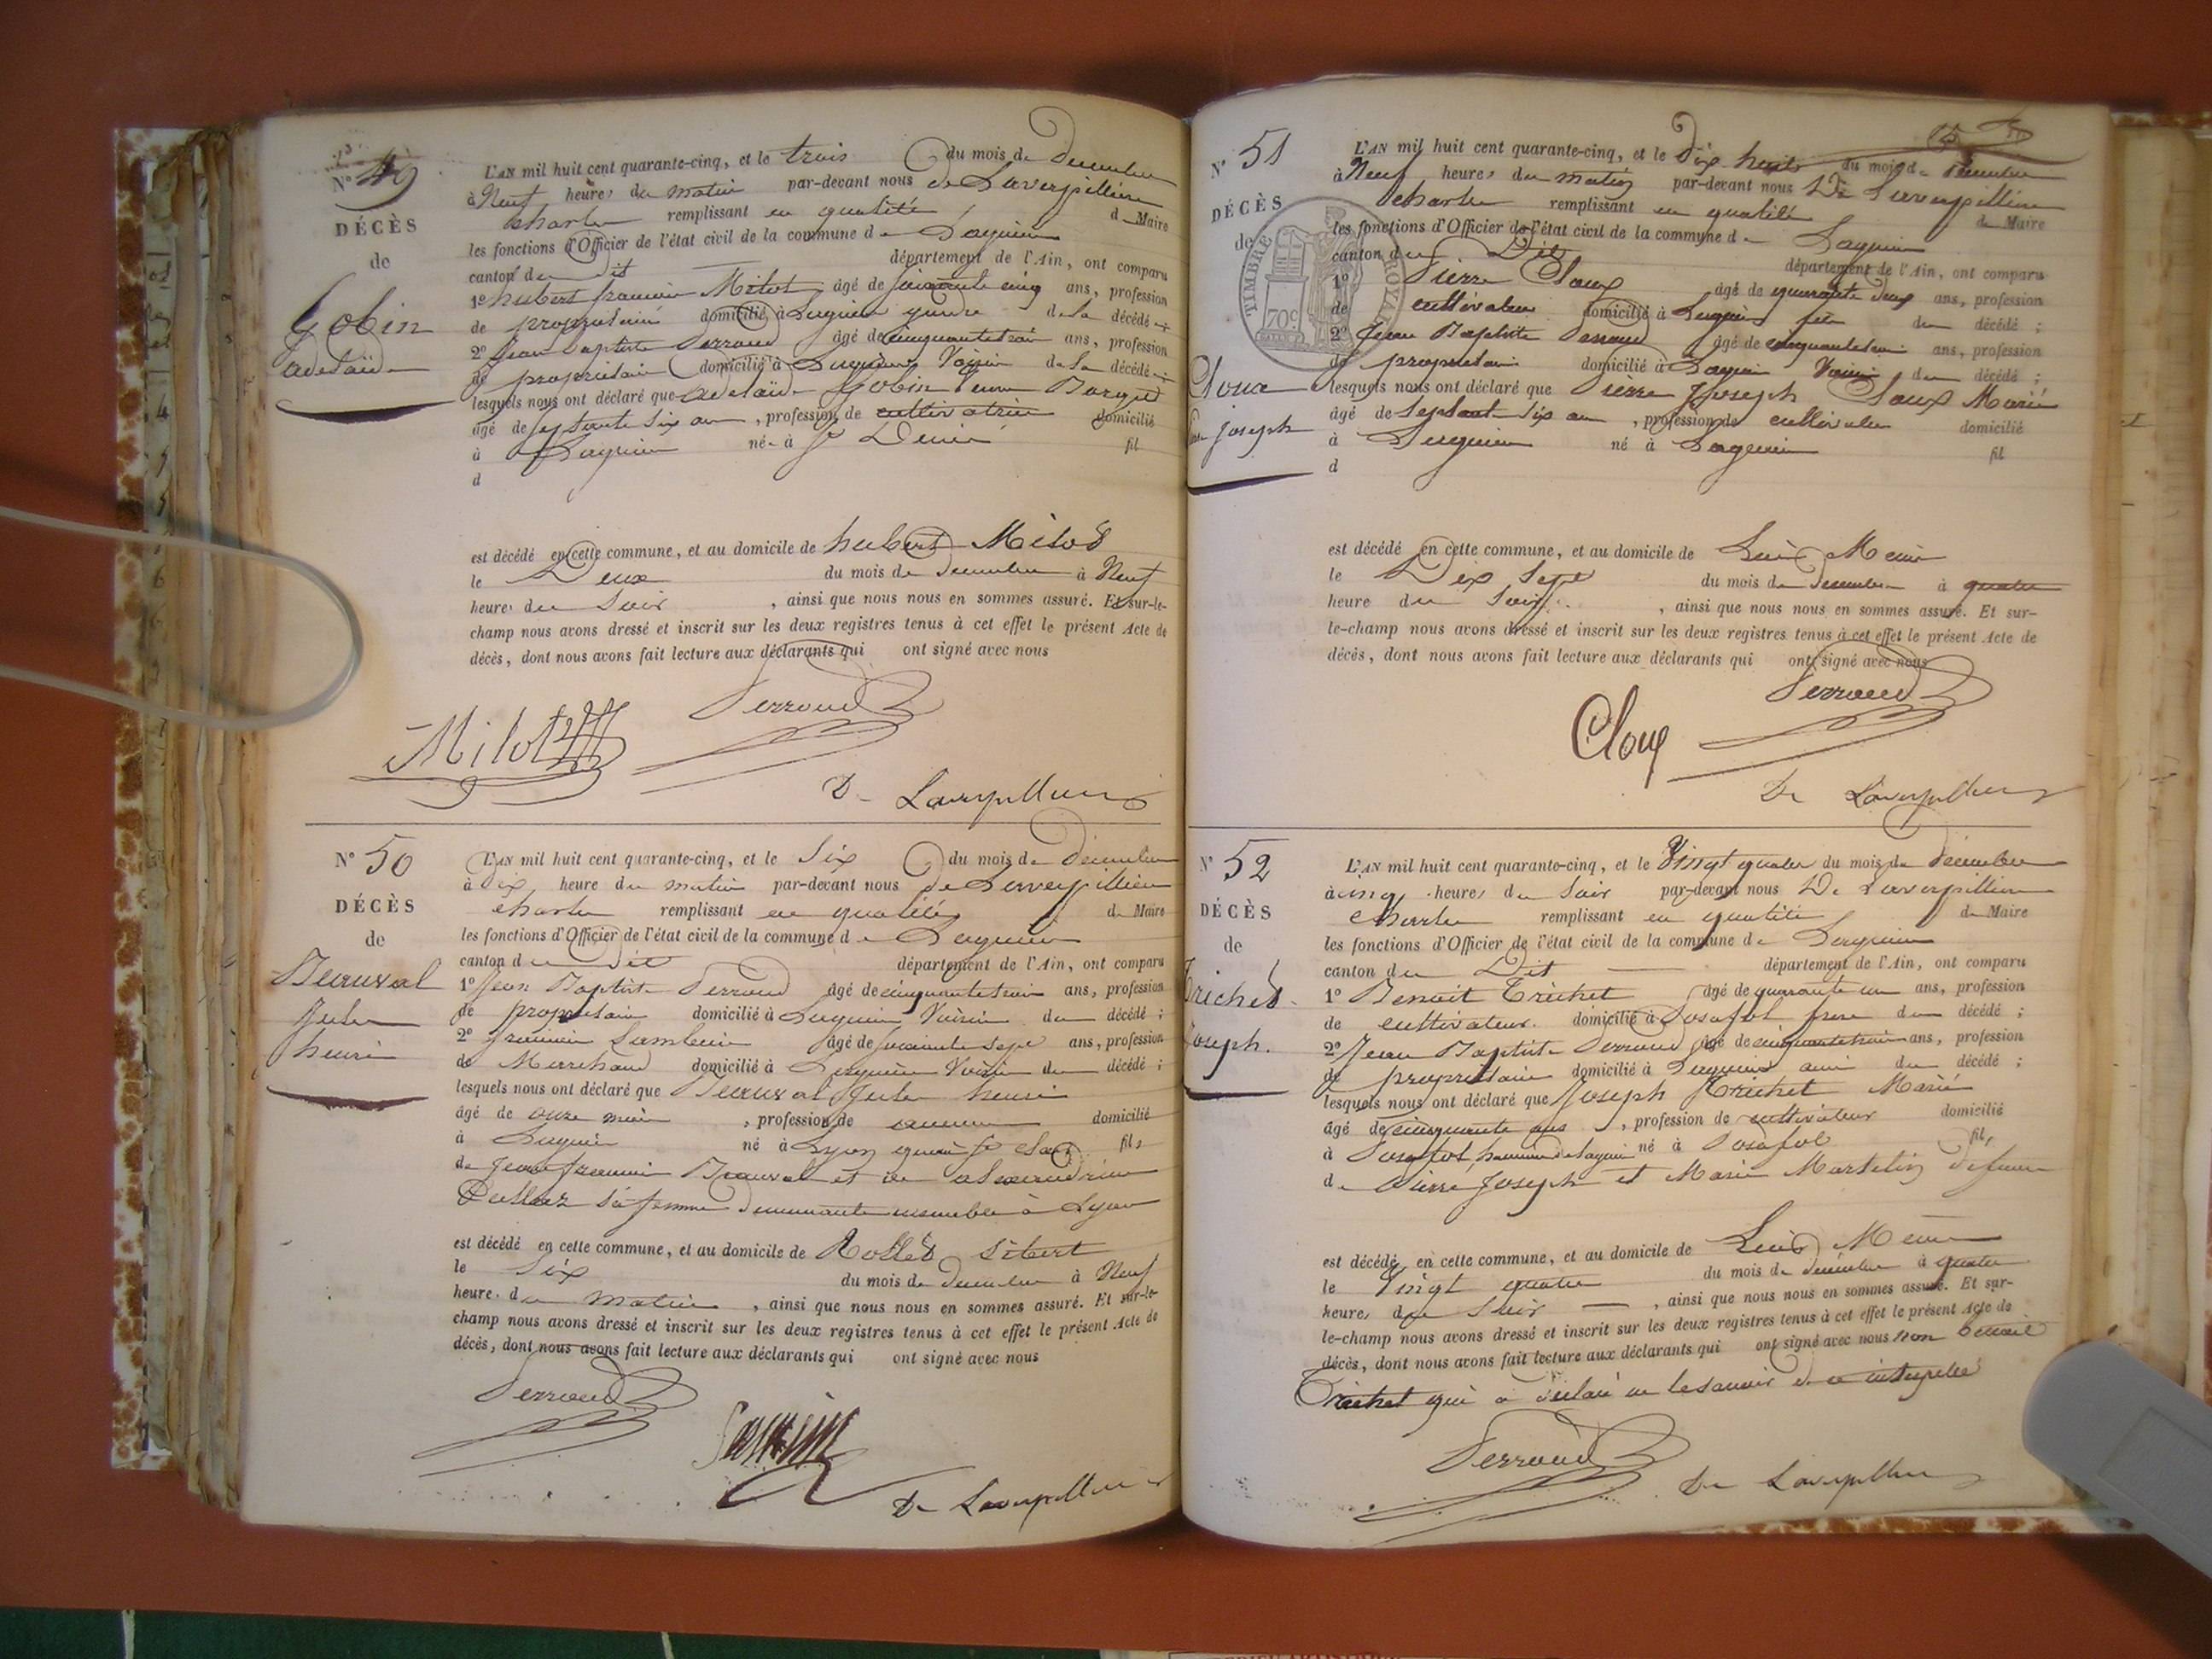 N° 49
DÉCÈS
de
Gobin
adelaïde
L'AN mil huit cent quarante-cinq, et le trois du mois de décembre
à Neuf heures du matin par-devant nous de Laverpillière
charles remplissant en qualité de Maire
les fonctions d'Officier de l'état civil de la commune de Lagnieu
canton du dit département de l'Ain, ont comparu
1° hubert françois Milot âgé de soixante cinq ans, profession
de propriétaire domicilié à Lagnieu gendre de la décédée
2° Jean Baptiste Perroud âgé de cinquante trois ans, profession
de propriétaire domicilié à Lagnieu Voisin de la décédée
lesquels nous ont déclaré que adelaïde Gobin
âgé de septante six ans, profession de cultivatrice domicilié
à Lagnieu née à St Denis fil
d
est décédé en cette commune, et au domicile de hubert Milot
le Deux du mois de décembre à Neuf
heures du Soir, ainsi que nous nous en sommes assuré. Et sur-le-
champ nous avons dressé et inscrit sur les deux registres tenus à cet effet le présent Acte de
décès, dont nous avons fait lecture aux déclarants qui ont signé avec nous
Perroud
Milot
De Laverpillière
N° 50
DÉCÈS
de
Jules
henri
L'AN mil huit cent quarante-cinq, et le Six du mois de décembre
à Dix heure du matin par-devant nous de Laverpillière
charles remplissant en qualité de Maire
les fonctions d'Officier de l'état civil de la commune de Lagnieu
canton du dit département de l'Ain, ont comparu
1° Jean Baptiste Perroud âgé de cinquante trois ans, profession
de propriétaire domicilié à Lagnieu Voisin du décédé ;
2° françois âgé de soixante sept ans, profession
de Marchand domicilié à Lagnieu Voisin du décédé ;
lesquels nous ont déclaré que Jules henri
âgé de onze mois, profession de domicilié
à Lagnieu né à Lyon fils
de Jean françois et de alexandrine
sa femme demeurante ensemble à Lyon
est décédé en cette commune, et au domicile de Rollet Sibert
le Six du mois de décembre à Neuf
heure. du matin, ainsi que nous nous en sommes assuré. Et sur-le-
champ nous avons dressé et inscrit sur les deux registres tenus à cet effet le présent Acte de
décès, dont nous avons fait lecture aux déclarants qui ont signé avec nous
Perroud
De Laverpillière
N° 51
DÉCÈS
de
Cloux
joseph
TIMBRE ROYAL
70c
L'AN mil huit cent quarante-cinq, et le Dix huit du mois de décembre
à Neuf heures du matin par-devant nous De Laverpillière
charles remplissant en qualité de Maire
les fonctions d'Officier de l'état civil de la commune de Lagnieu
canton du Dit département de l'Ain, ont comparu
1° Pierre Cloux âgé de quarante deux ans, profession
de cultivateur domicilié à Lagnieu fils du décédé ;
2° Jean Baptiste Perroud âgé de cinquante trois ans, profession
de propriétaire domicilié à Lagnieu Voisin du décédé ;
lesquels nous ont déclaré que Pierre Joseph Cloux Marié
âgé de Septante Six ans, profession de cultivateur domicilié
à Lagnieu né à Lagnieu fil
d
est décédé en cette commune, et au domicile de
le Dix Sept du mois de décembre à quatre
heure du Soir, ainsi que nous nous en sommes assuré. Et sur-
le-champ nous avons dressé et inscrit sur les deux registres tenus à cet effet le présent Acte de
décès, dont nous avons fait lecture aux déclarants qui ont signé avec nous
Perroud
Cloux
De Laverpillière
N° 52
DÉCÈS
de
Trichet
Joseph.
L'AN mil huit cent quarante-cinq, et le Vingt quatre du mois de décembre
à cinq heures du Soir par-devant nous De Laverpillière
Charles remplissant en qualité de Maire
les fonctions d'Officier de l'état civil de la commune de Lagnieu
canton du Dit département de l'Ain, ont comparu
1° Benoit Trichet âgé de quarante un ans, profession
de cultivateur domicilié à Posafol frere du décédé ;
2° Jean Baptiste Perroud âgé de cinquante trois ans, profession
de propriétaire domicilié à Lagnieu ami du décédé ;
lesquels nous ont déclaré que Joseph Trichet Marié
âgé de cinquante ans, profession de cultivateur domicilié
à Posafol hameau de Lagnieu né à Posafol fil,
de Pierre Joseph et Marie Martelin
est décédé, en cette commune, et au domicile de
le Vingt quatre du mois de décembre à quatre
heures du Soir, ainsi que nous nous en sommes assuré. Et sur-
le-champ nous avons dressé et inscrit sur les deux registres tenus à cet effet le présent Acte de
décès, dont nous avons fait lecture aux déclarants qui ont signé avec nous non Benoit
Trichet qui a déclaré ne le savoir de ce interpellé
Perroud
De Laverpillière